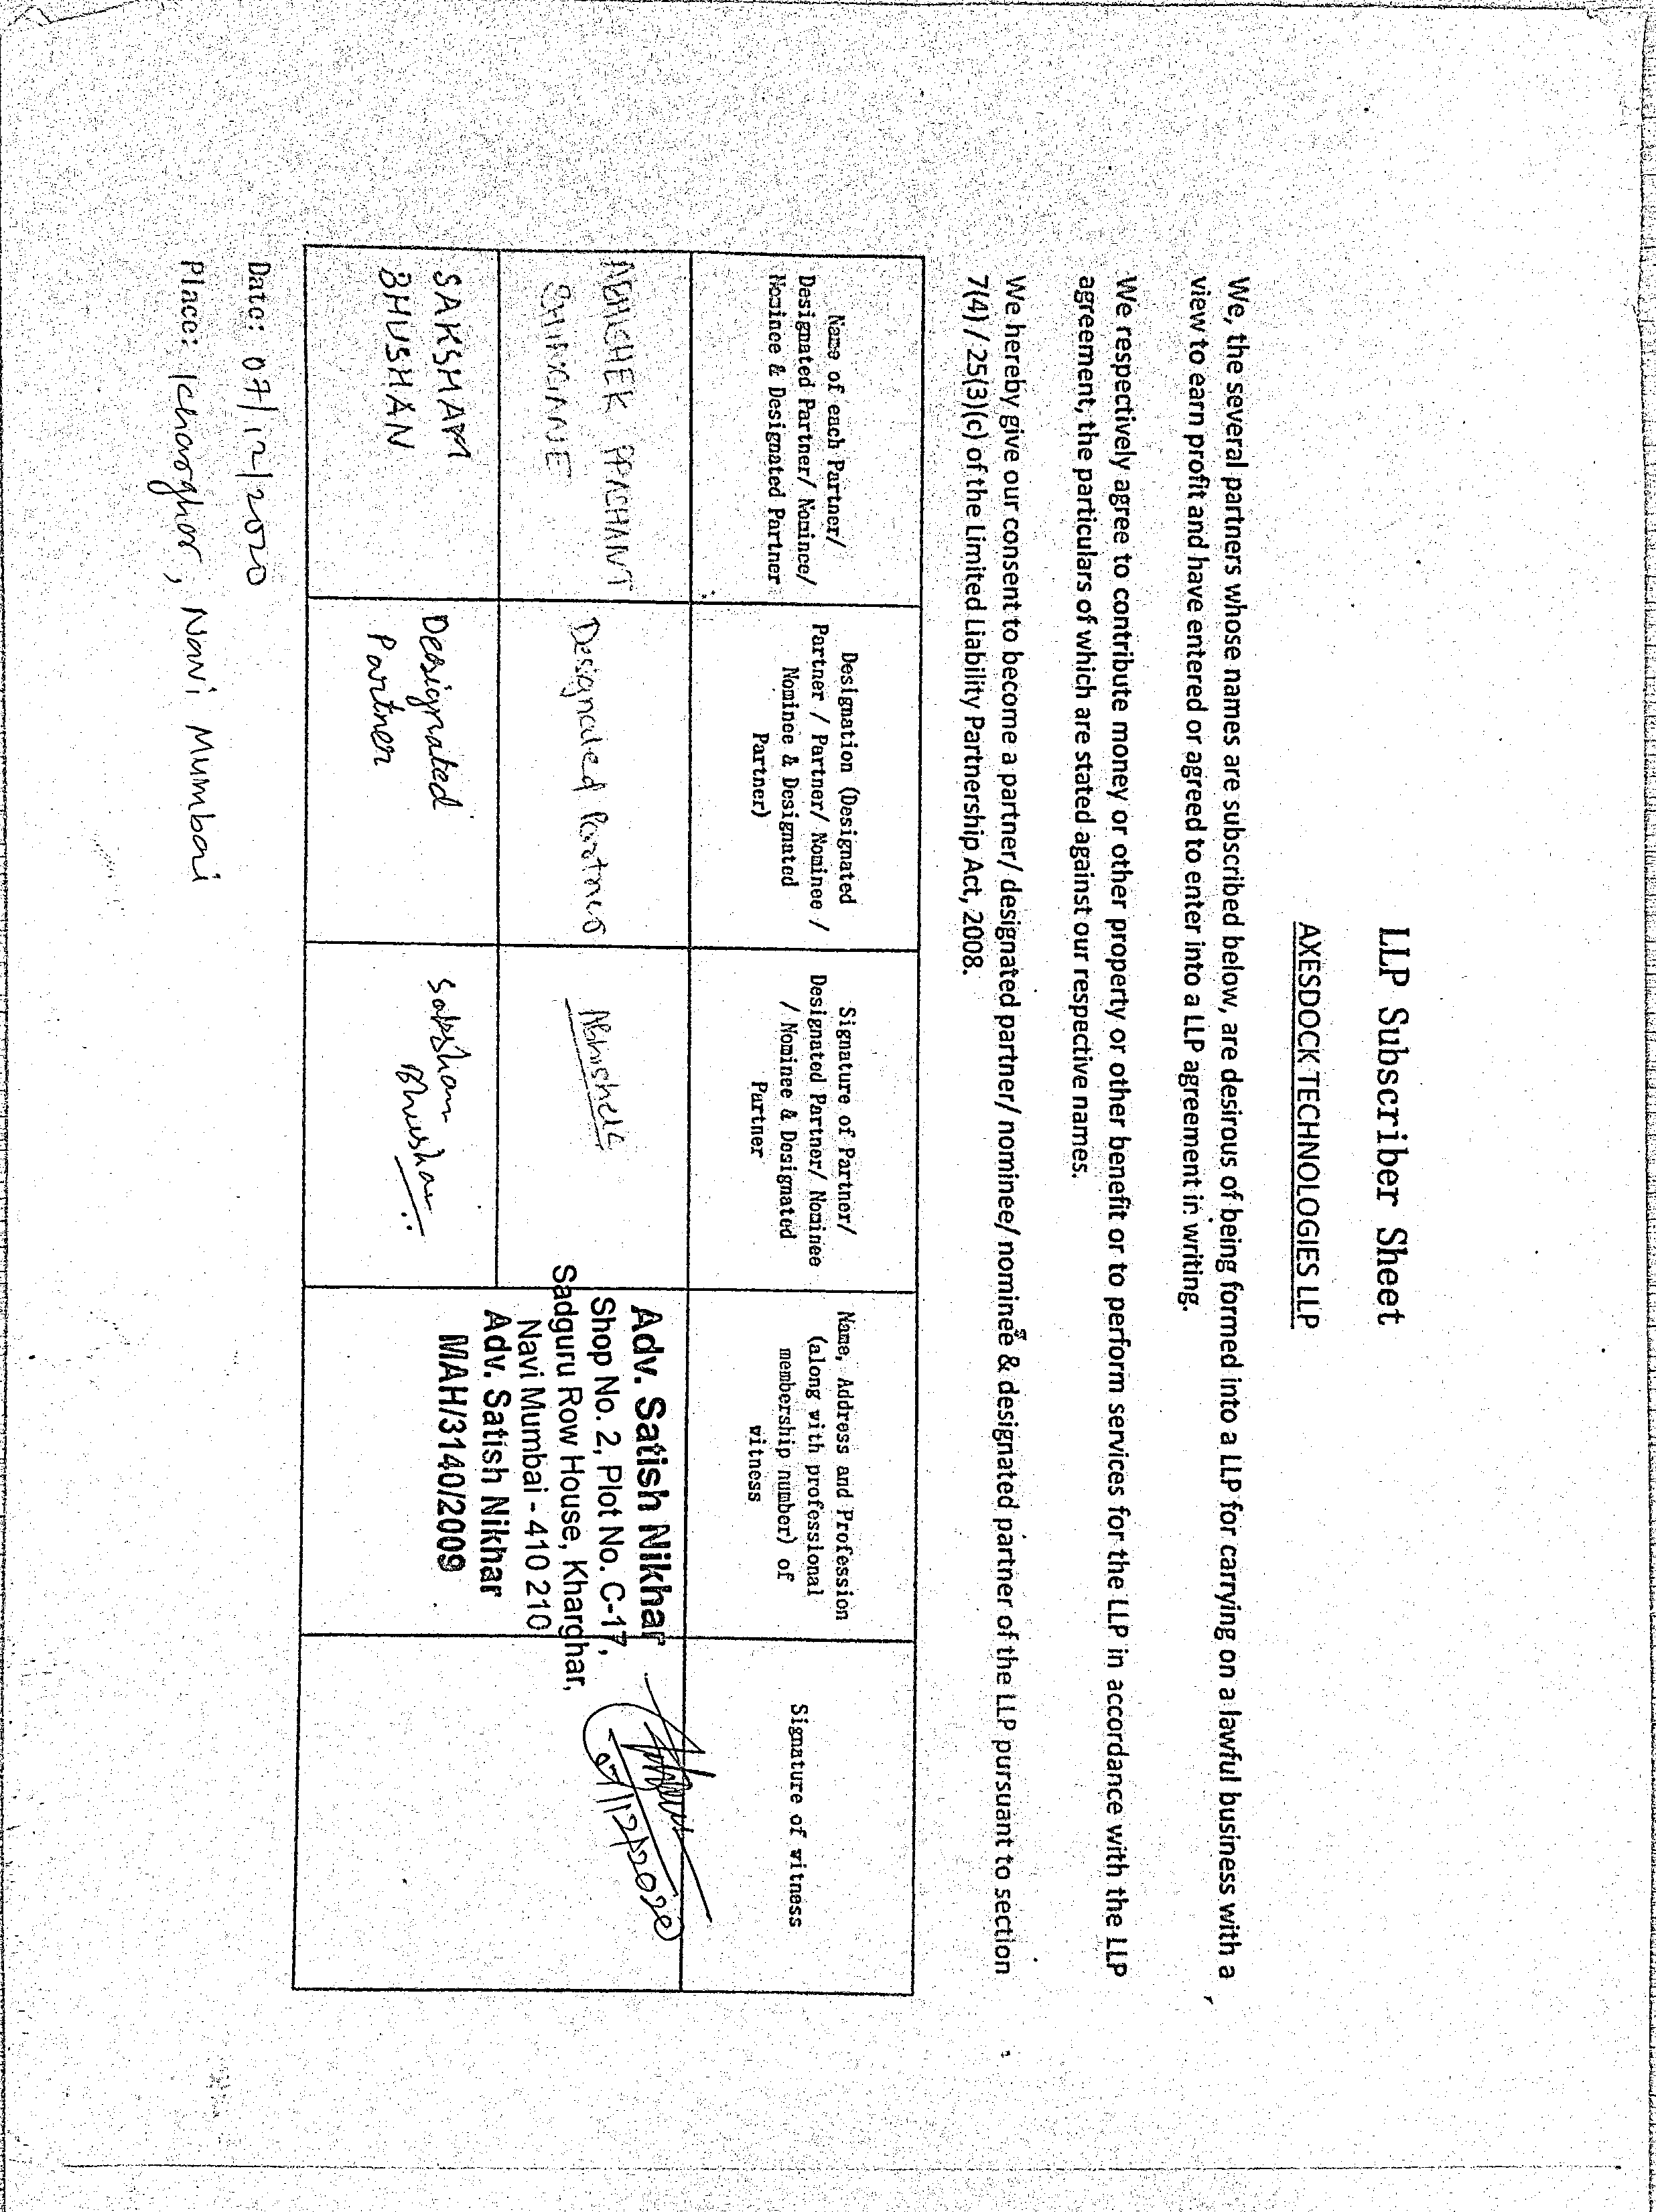 LLP Subscriber Sheet
AXESDOCK TECHNOLOGIES LLP
We, the several partners whose names are subscribed below, are desirous of being formed into a LLP for carrying on a lawful business with a
view to earn profit and have entered or agreed to enter into a LLP agreement in writing.
We respectively agree to contribute money or other property or other benefit or to perform services for the LLP in accordance with the LLP
agreement, the particulars of which are stated against our respective names.
We hereby give our consent to become a partner/ designated partner/ nominee/ nominee & designated partner of the LLP pursuant to section
7(4) / 25(3)(c) of the Limited Liability Partnership Act, 2008.
Name of each Partner/
Designated Partner/ Nominee/
Nominee & Designated Partner
Designation (Designated
Partner / Partner/ Nominee /
Nominee & Designated
Partner)
Signature of Partner/
Designated Partner/ Nominee
/ Nominee & Designated
Partner
Name, Address and Profession
(along with professional
membership number) of
witness
Signature of witness
ABHISHEK PRASHANT
Designated Partner
Abhishek
SAKSHAM
BHUSHAN
Designated
Partner
Saksham
Bhushan
Adv. Satish Nikhar
Shop No. 2, Plot No. C-17,
Sadguru Row House, Kharghar,
Navi Mumbai - 410 210
Adv. Satish Nikhar
MAH/3140/2009
07/12/2020
Date: 07/12/2020
Place: Kharghar, Navi Mumbai